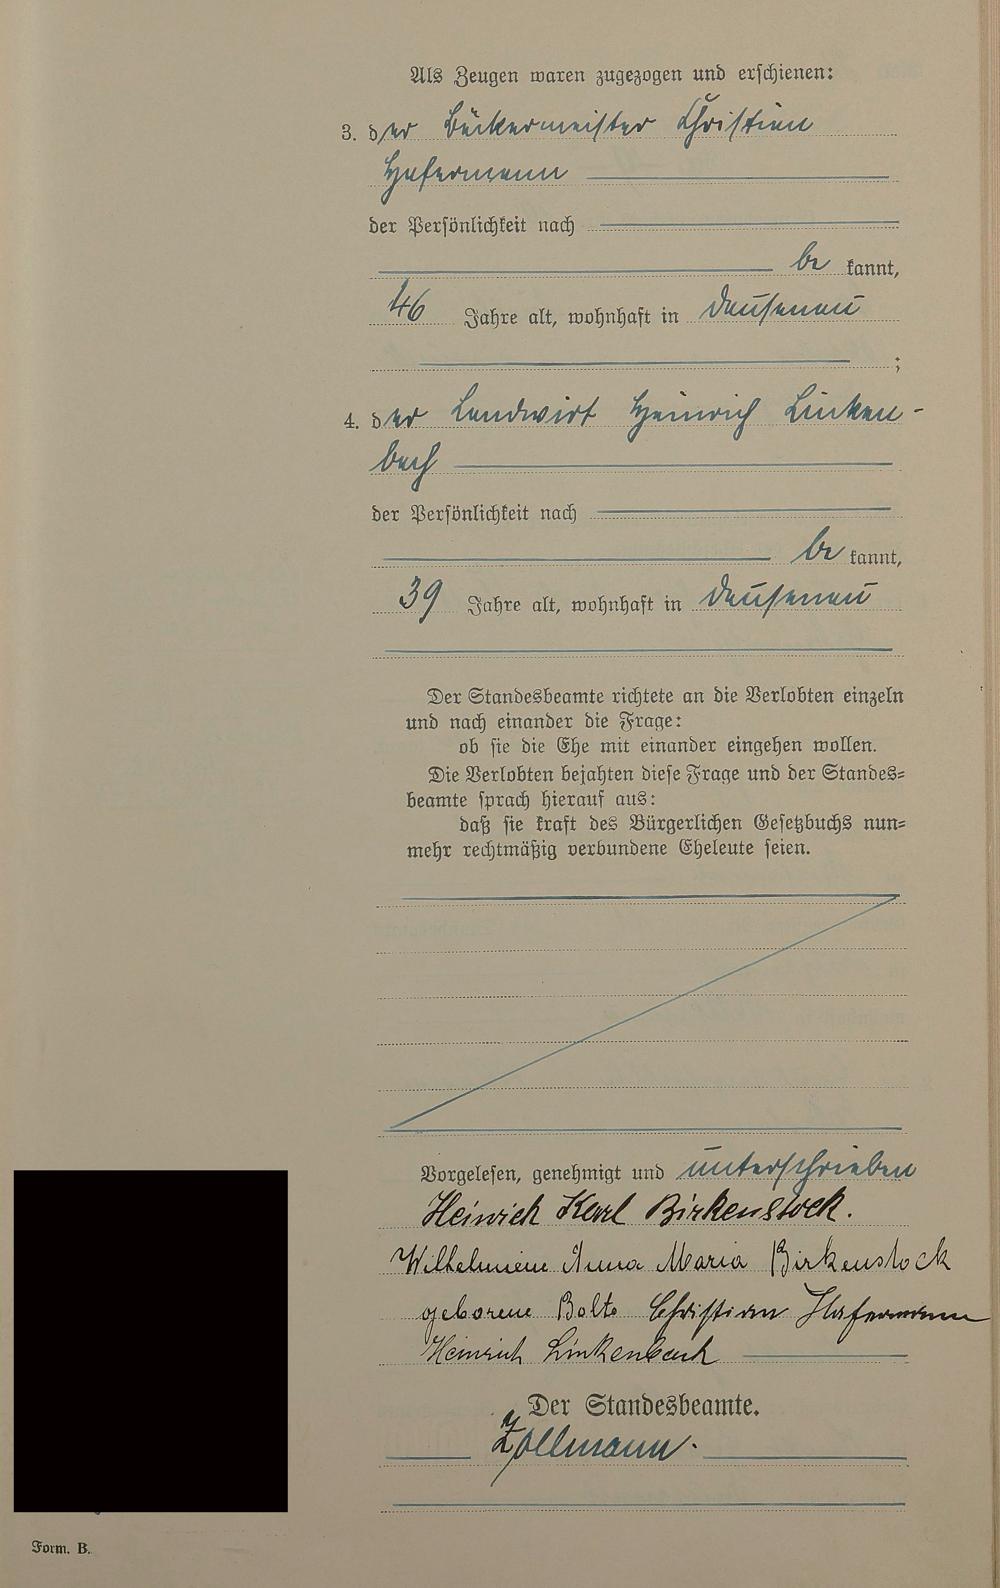 Als Zeugen waren zugezogen und erschienen:
3. der Bäckermeister Christian
Hafermann
der Persönlichkeit nach
be kannt,
46 Jahre alt, wohnhaft in Dausenau
;
4. der Landwirt Heinrich Linken-
bach
der Persönlichkeit nach
be kannt,
39 Jahre alt, wohnhaft in Dausenau
Der Standesbeamte richtete an die Verlobten einzeln
und nach einander die Frage:
ob sie die Ehe mit einander eingehen wollen.
Die Verlobten bejahten diese Frage und der Standes=
beamte sprach hierauf aus:
daß sie kraft des Bürgerlichen Gesetzbuchs nun=
mehr rechtmäßig verbundene Eheleute seien.
Vorgelesen, genehmigt und unterschrieben
Heinrich Karl Birkenstock.
Wilhelmine Anna Maria Birkenstock
geborene Bolte Christian Hafermann
Heinrich Linkenbach
Der Standesbeamte.
Zollmann.
Form. B.